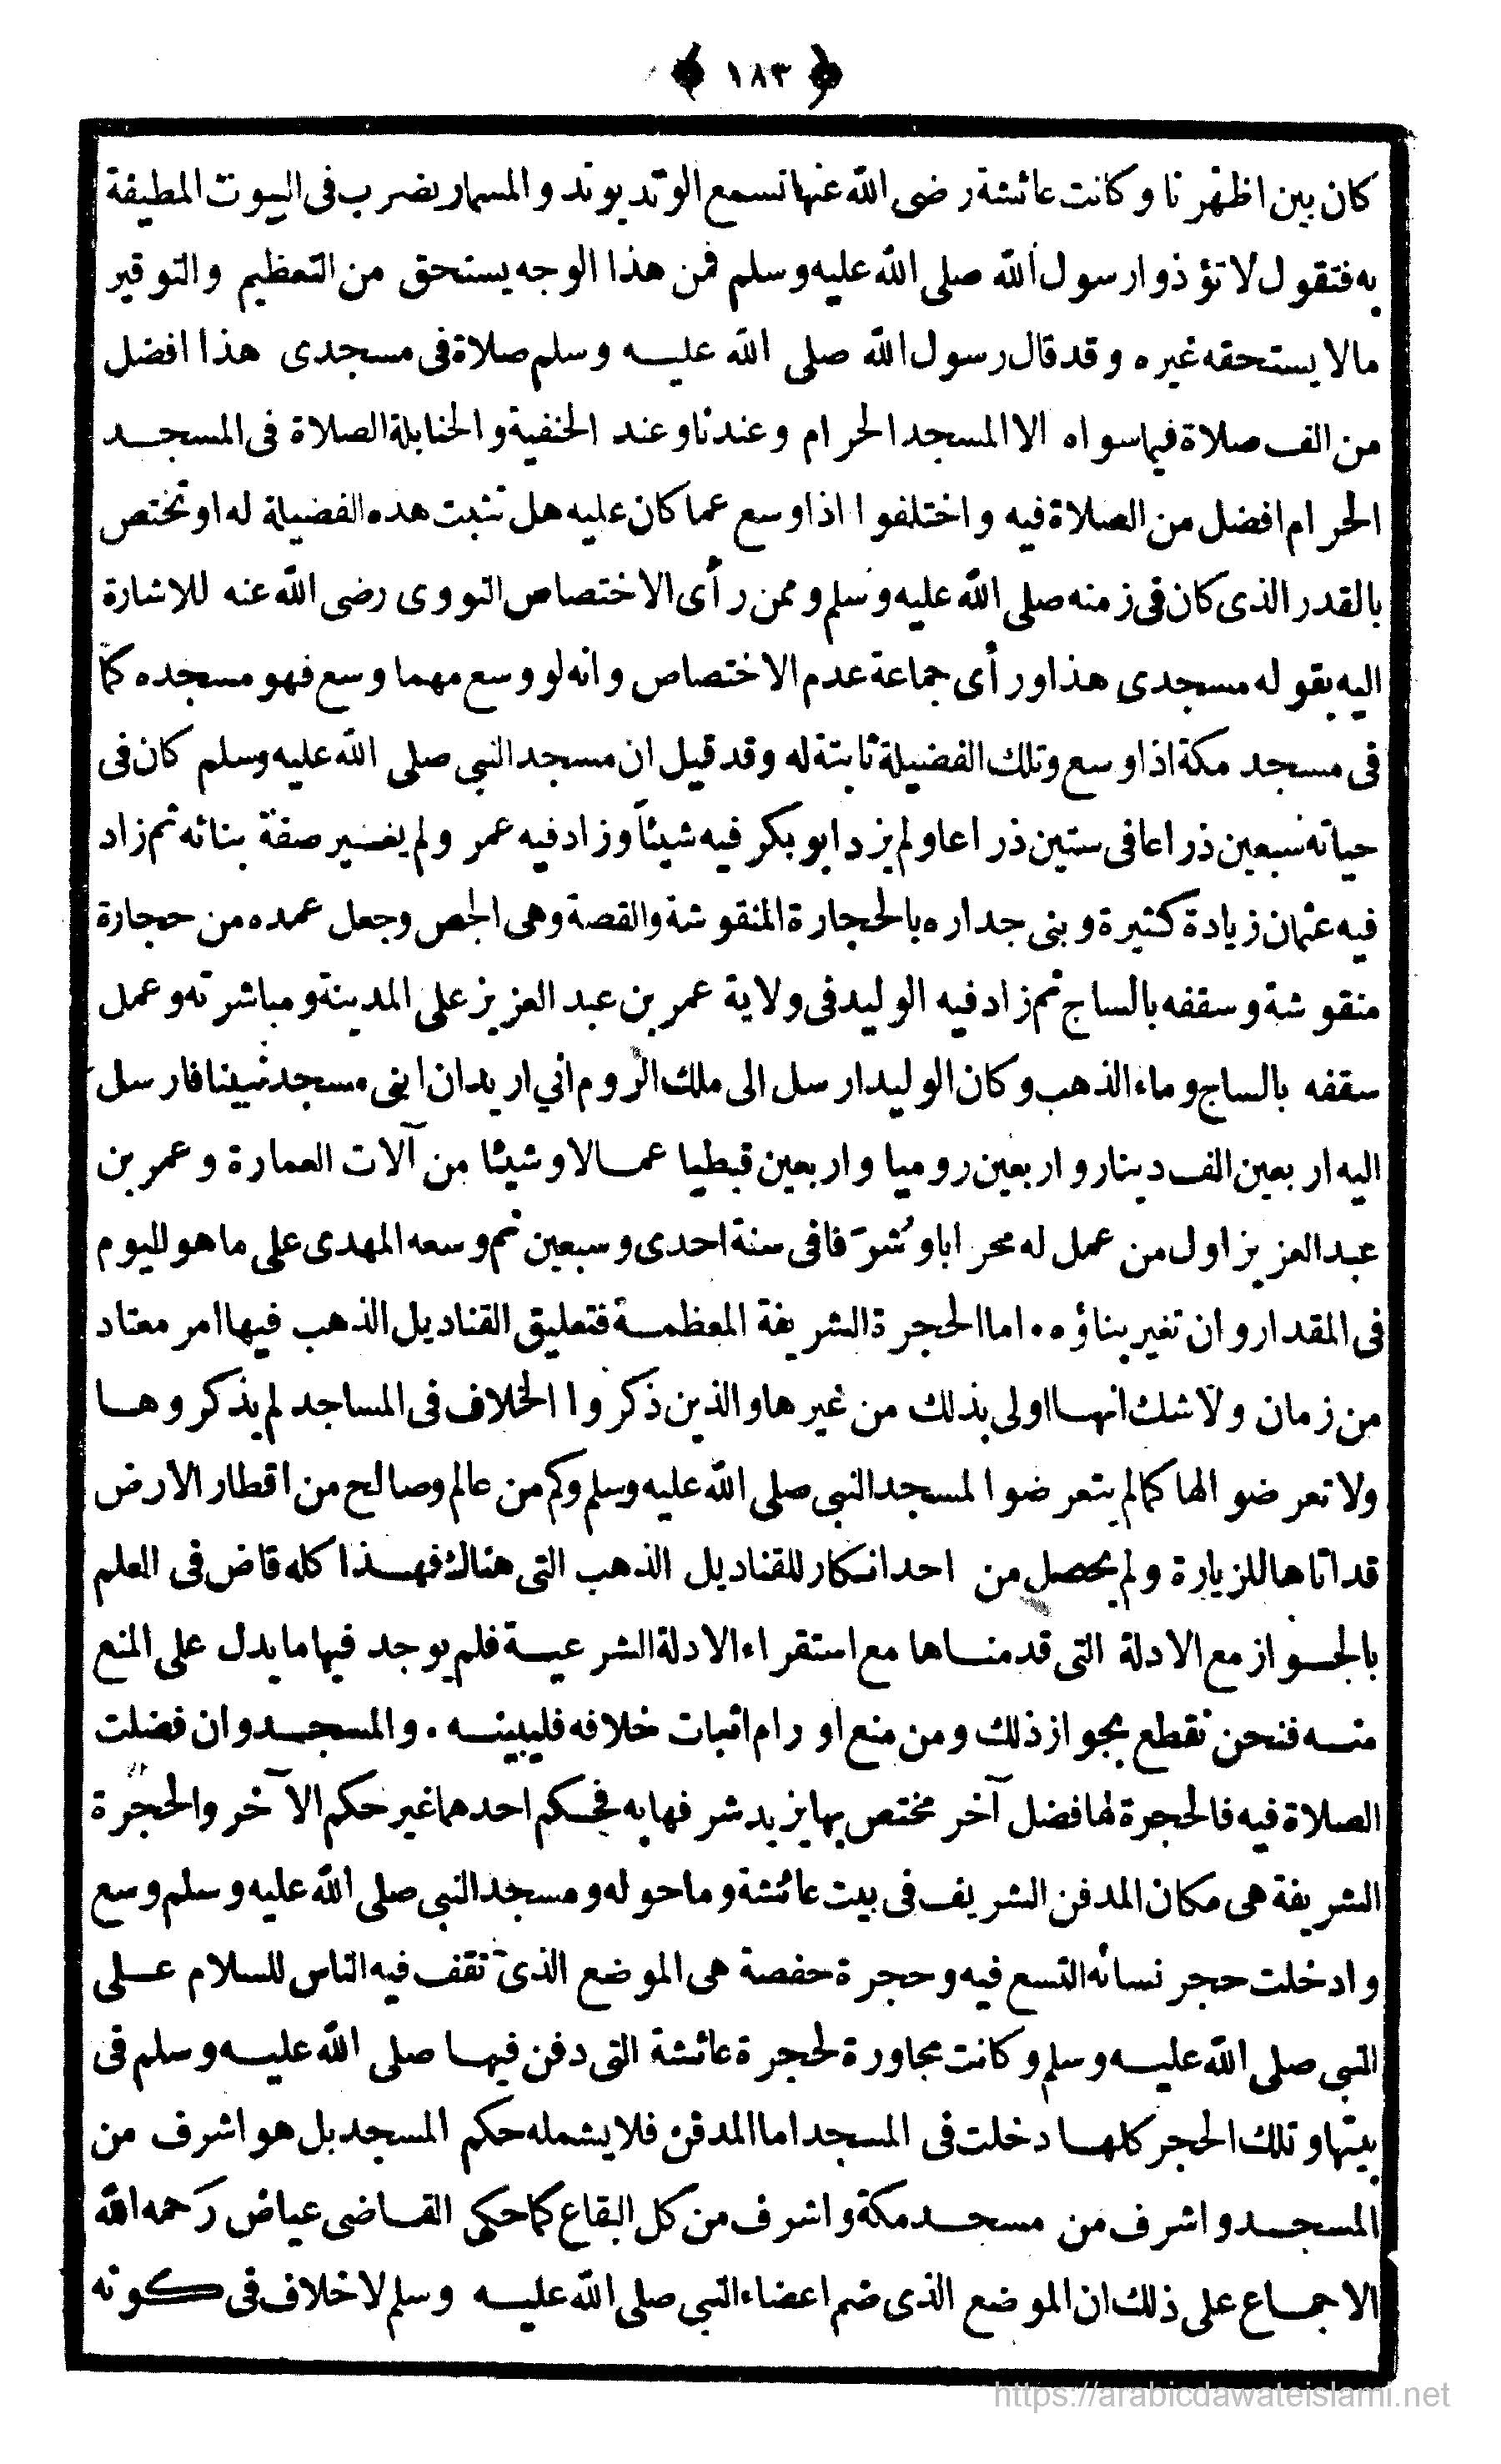 ﴿ ١٨٣ ﴾
كان بين اظهرنا وكانت عائشة رضى الله عنها تسمع الوتد يوتد والمسمار يضرب فى البيوت المطيفة
به فتقول لا تؤذوا رسول الله صلى الله عليه وسلم فمن هذا الوجه يستحق من التعظيم والتوقير
مالا يستحقه غيره وقد قال رسول الله صلى الله عليه وسلم صلاة فى مسجدى هذا افضل
من الف صلاة فيما سواه الا المسجد الحرام وعندنا وعند الحنفية والحنابلة الصلاة فى المسجد
الحرام افضل من الصلاة فيه واختلفوا اذا وسع عما كان عليه هل تثبت هذه الفضيلة له او تختص
بالقدر الذى كان فى زمنه صلى الله عليه وسلم وممن رأى الاختصاص النووى رضى الله عنه للاشارة
اليه بقوله مسجدى هذا ورأى جماعة عدم الاختصاص وانه لو وسع مهما وسع فهو مسجده كما
فى مسجد مكة اذا وسع وتلك الفضيلة ثابتة له وقد قيل ان مسجد النبى صلى الله عليه وسلم كان فى
حياته سبعين ذراعا فى ستين ذراعا ولم يزد ابو بكر فيه شيئاً وزاد فيه عمر ولم يغير صفة بنائه ثم زاد
فيه عثمان زيادة كثيرة وبنى جداره بالحجارة المنقوشة والقصة وهى الجص وجعل عمده من حجارة
منقوشة وسقفه بالساج ثم زاد فيه الوليد فى ولاية عمر بن عبد العزيز على المدينة ومباشرته وعمل
سقفه بالساج وماء الذهب وكان الوليد ارسل الى ملك الروم انى اريد ان ابنى مسجد نبينا فارسل
اليه اربعين الف دينار واربعين روميا واربعين قبطيا عمالا وشيئا من آلات العمارة وعمر بن
عبد العزيز اول من عمل له محرابا وشرفا فى سنة احدى وسبعين ثم وسعه المهدى على ما هو اليوم
فى المقدار وان تغير بناؤه . اما الحجرة الشريفة المعظمة فتعليق القناديل الذهب فيها امر معتاد
من زمان ولا شك انها اولى بذلك من غيرها والذين ذكروا الخلاف فى المساجد لم يذكروها
ولا تعرضوا لها كما لم يتعرضوا لمسجد النبى صلى الله عليه وسلم وكم من عالم وصالح من اقطار الارض
قد اتاها للزيارة ولم يحصل من احد انكار للقناديل الذهب التى هناك فهذا كله قاض فى العلم
بالجواز مع الادلة التى قدمناها مع استقراء الادلة الشرعية فلم يوجد فيها ما يدل على المنع
منه فنحن نقطع بجواز ذلك ومن منع او رام اثبات خلافه فليبينه . والمسجد وان فضلت
الصلاة فيه فالحجرة لها فضل آخر مختص بها يزيد شرفها به فحكم احدهما غير حكم الآخر والحجرة
الشريفة هى مكان المدفن الشريف فى بيت عائشة وما حوله ومسجد النبى صلى الله عليه وسلم وسع
وادخلت حجر نسائه التسع فيه وحجرة حفصة هى الموضع الذى تقف فيه الناس للسلام على
النبى صلى الله عليه وسلم وكانت مجاورة لحجرة عائشة التى دفن فيها صلى الله عليه وسلم فى
بيتها وتلك الحجر كلها دخلت فى المسجد اما المدفن فلا يشمله حكم المسجد بل هو اشرف من
المسجد واشرف من مسجد مكة واشرف من كل البقاع كما حكى القاضى عياض رحمه الله
الاجماع على ذلك ان الموضع الذى ضم اعضاء النبى صلى الله عليه وسلم لا خلاف فى كونه
https://arabicdawateislami.net